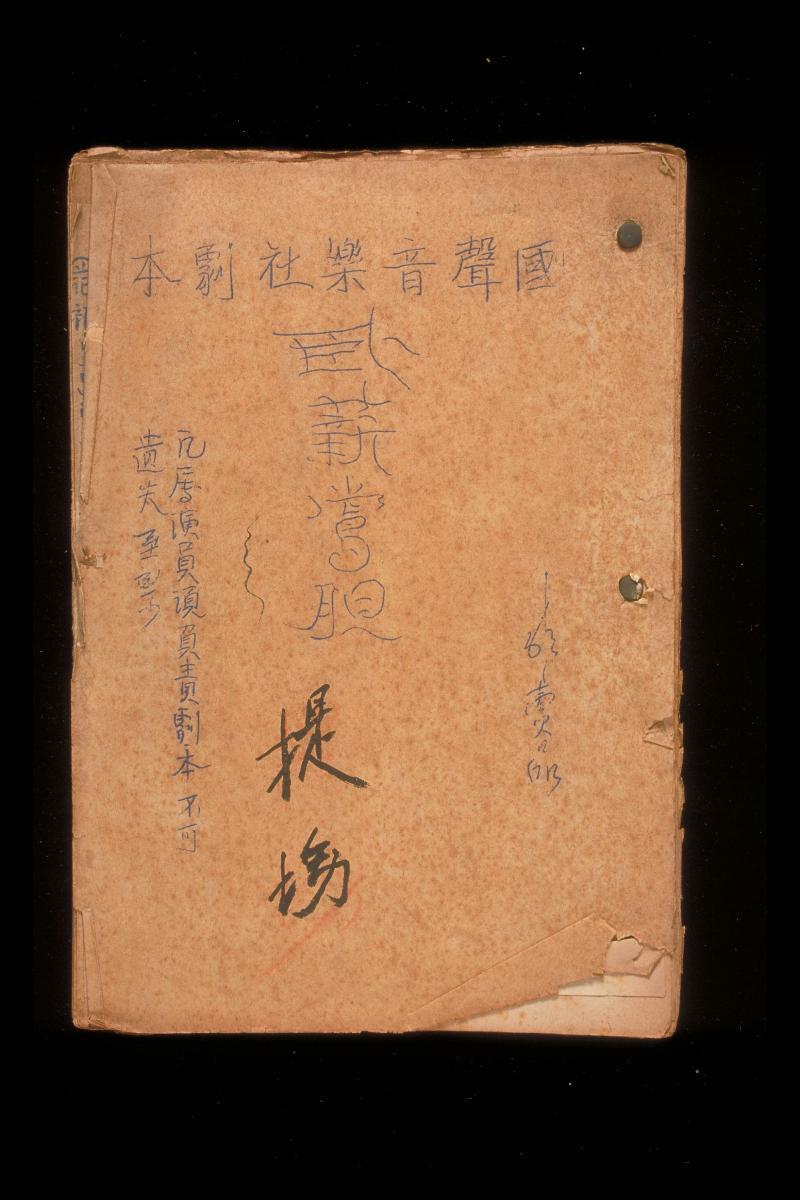 國聲音樂社劇本
臥薪嘗胆
提場
凡屬演員須負責劇本不可
遺失至要